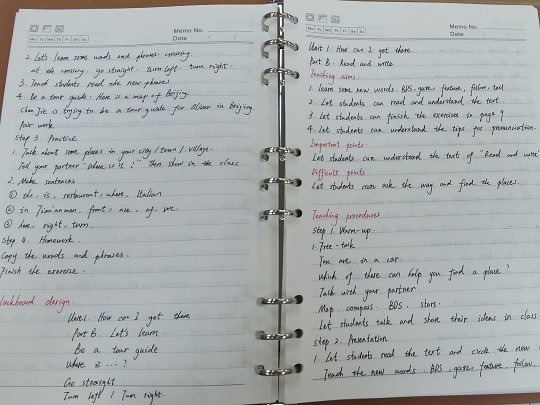 Memo No.
Mo Tu We Th Fr Sa Su
Date / /
2. Let's learn some words and phrases: crossing,
at the crossing, go straight, turn left, turn right.
3. Teach students read the new phrases
4. Be a tour guide. Here is a map of Beijing.
Chen Jie is trying to be a tour guide for Oliver in Beijing.
Pair work
Step 3. Practice
1. Talk about some places in your city / town / village.
Tell your partner "where is it?" Then show in the class
2. Make sentences
① the, is, restaurant, where, Italian
② in Tian'anmen, front, are, of, we
③ here, right, turn.
Step 4. Homework.
Copy the words and phrases.
Finish the exercise.
lackboard design.
Unit 1. How can I get there
Part B. Let's learn.
Be a tour guide
Where is ...?
Go straight
Turn left / Turn right.
Memo No.
Mo Tu We Th Fr Sa Su
Date / /
Unit 1. How can I get there
Part B. Read and write
Teaching aims:
1. learn some new words, BDS, gave, feature, follow, tell
2. Let students can read and understand the text.
3. Let students can finish the exercises in page 9
4. Let students can understand the tips for pronunciation.
Important points
Let students can understand the text of "Read and write"
Difficult points
Let students can ask the way and find the places.
Teaching procedures
Step 1. Warm-up.
1. Free-talk
You are in a car.
Which of these can help you find a place?
Talk with your partner
Map. compass. BDS. stars.
Let students talk and share their ideas in class
Step 2. Presentation
1. Let students read the text and circle the new
Teach the new words. BDS, gave, feature, follow,